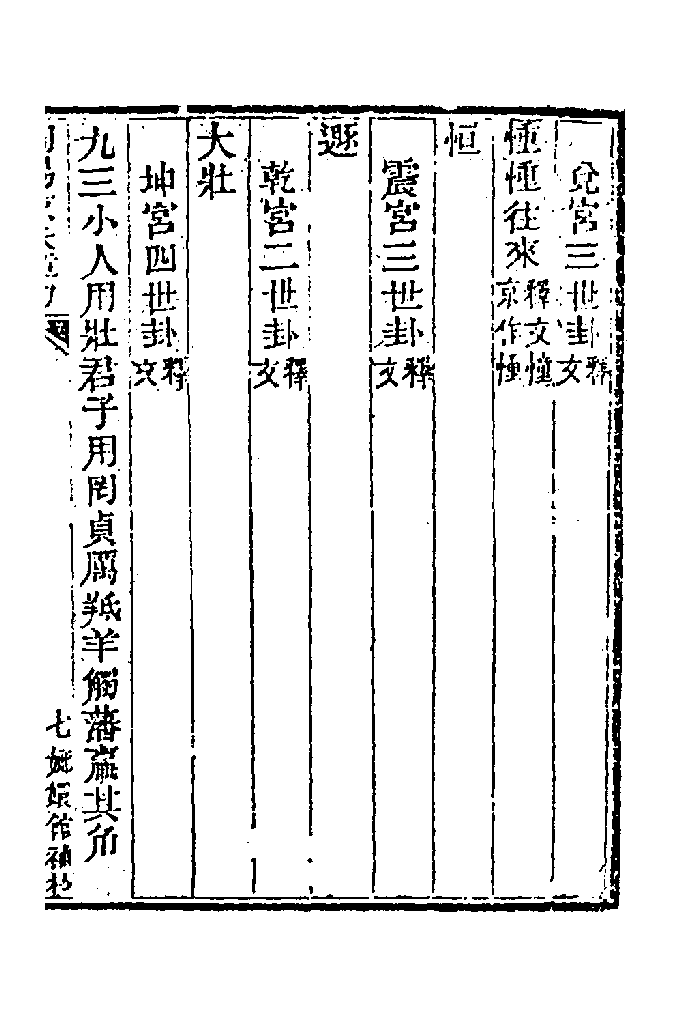 兌宮三世卦釋文
往來釋文憧京作
恒
震宮三世卦釋文
遯
乾宮二世卦釋文
大壯
坤宮四世卦釋文
九三小人用壯君子用罔貞厲羝羊觸藩羸其角
七 嫏嬛館補校